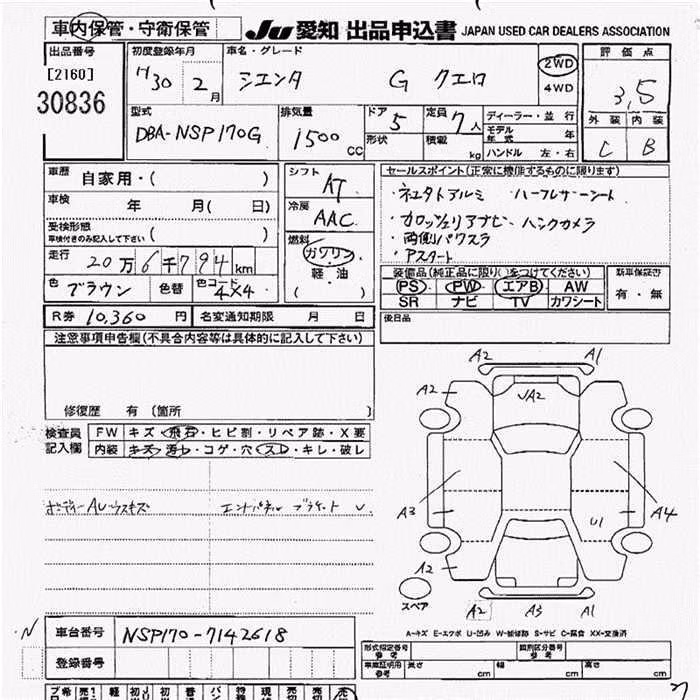 車内保管・守衛保管
JU 愛知 出品申込書 JAPAN USED CAR DEALERS ASSOCIATION
出品番号
[2160]
30836
初度登録年月
H30 2月
車名・グレード
シエンタ G クエロ
2WD
4WD
評価点
3.5
外装 内装
C B
型式
DBA-NSP170G
排気量
1500 CC
ドア 5
形状
定員 7人
積載 kg
ディーラー・並行
モデル年式 年
ハンドル 左・右
車歴 自家用・( )
車検 年 月( 日)
受検形態
車検付きのみ記入して下さい ( )
走行 20万6千794km
色 ブラウン 色替 色コード 4X4
シフト AT
冷房 AAC
燃料
ガソリン
軽・油
( )
セールスポイント(正常に機能するものに限ります)
・ハーフレザーシート
・カロッツェリアナビ・バックカメラ
・両側パワスラ
・Pスタート
装備品(純正品に限り○をつけてください)
PS PW エアB AW
SR ナビ TV カワシート
新車保証書
有・無
R券 10,360 円 名変通知期限 月 日
後日品
注意事項申告欄(不具合内容等は具体的に記入して下さい)
修復歴 有〔箇所 〕
検査員記入欄
FW キズ・飛石・ヒビ割・リペア跡・X要
内装 キズ・汚れ・コゲ・穴・スレ・キレ・破レ
ボディーAUウスキズ
A2 A1
A2 UA2
A3 A4
U1
A2
スペア
A2 A3 A1
A-キズ E-エクボ U-凹み W-補修跡 S-サビ C-腐食 XX-交換済
車台番号 NSP170-7142618
登録番号
型式指定番号 参考
類別区分番号 参考
車庫証明用 参考 長さ cm 幅 cm 高さ cm